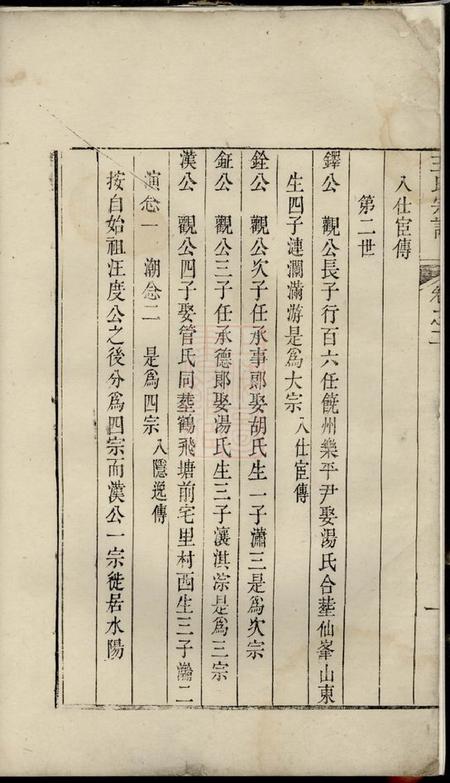 王氏宗譜 卷之二 一
入仕宦傳
第二世
鐸公 觀公長子行百六任饒州樂平尹娶湯氏合塟仙峯山東
生四子漣瀾滿游是爲大宗入仕宦傳
銓公 觀公次子任承事郎娶胡氏生一子瀟三是爲次宗
鉦公 觀公三子任承德郎娶湯氏生三子瀼淇淙是爲三宗
漢公 觀公四子娶管氏同塟鶴飛塘前宅里村西生三子瀚二
演叁一 潮叁二 是爲四宗入隱逸傳
按自始祖汪度公之後分爲四宗而漢公一宗徙居水陽